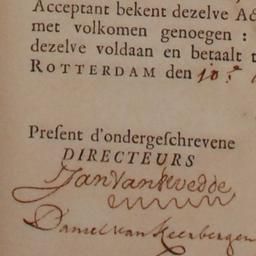 Acceptant bekent dezelve
met volkomen genoegen :
dezelve voldaan en betaalt
ROTTERDAM den 10:e
Preſent d'ondergeſchrevene
DIRECTEURS
Jan van
Daniel van Keerbergen